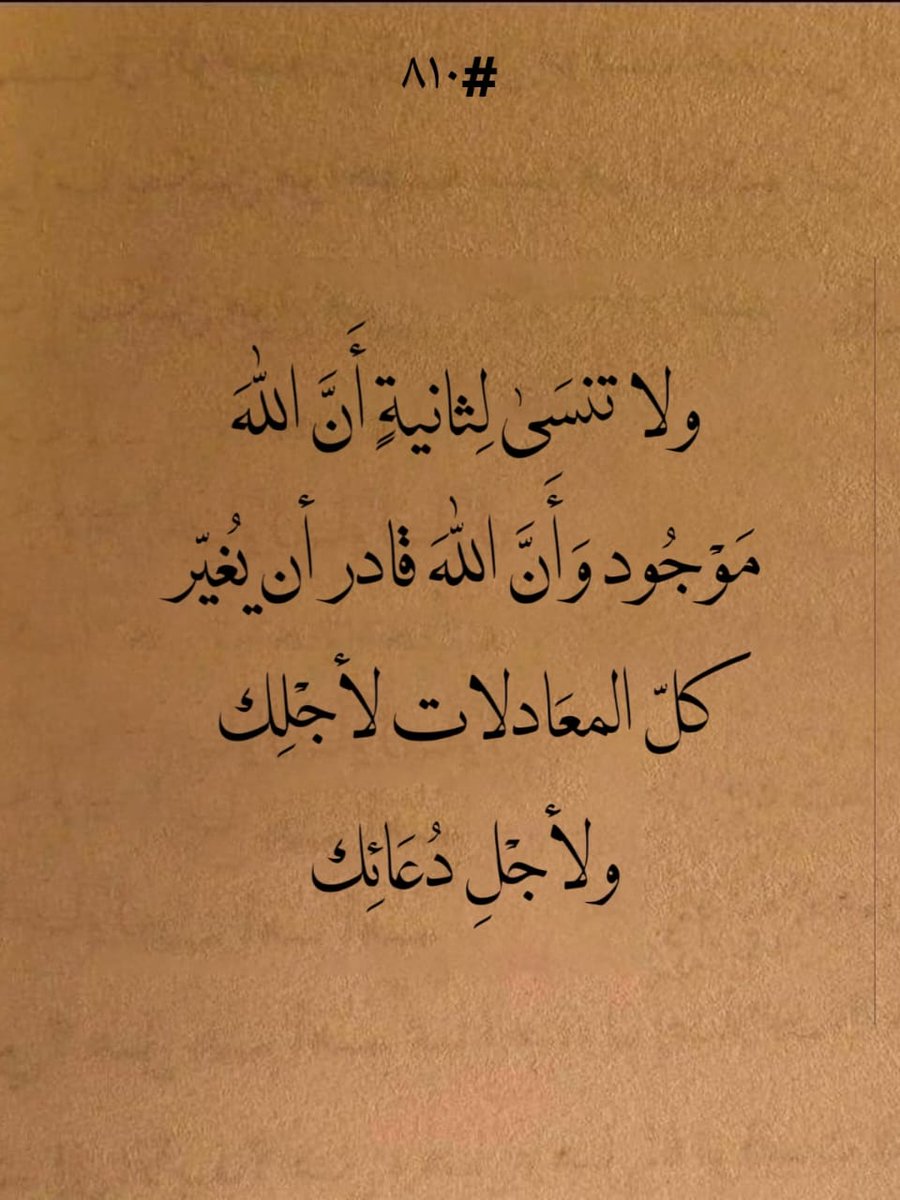 #٨١٠
ولا تنسَىٰ لِثانيةٍ أَنَّ اللّٰهَ
مَوْجُود وَأَنَّ اللّٰهَ قادر أن يُغيّر
كلّ المعَادلات لأجْلِك
ولأجْلِ دُعَائِك